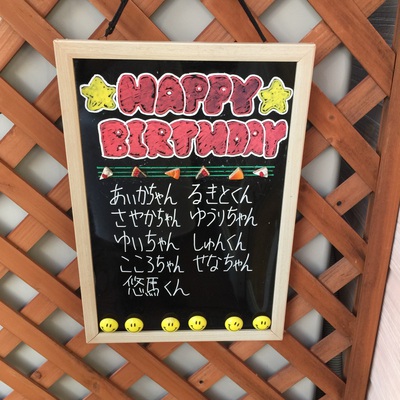 HAPPY
BIRTHDAY
あいかちゃん るきとくん
さやかちゃん ゆうりちゃん
ゆいちゃん しゅんくん
こころちゃん せなちゃん
悠馬くん